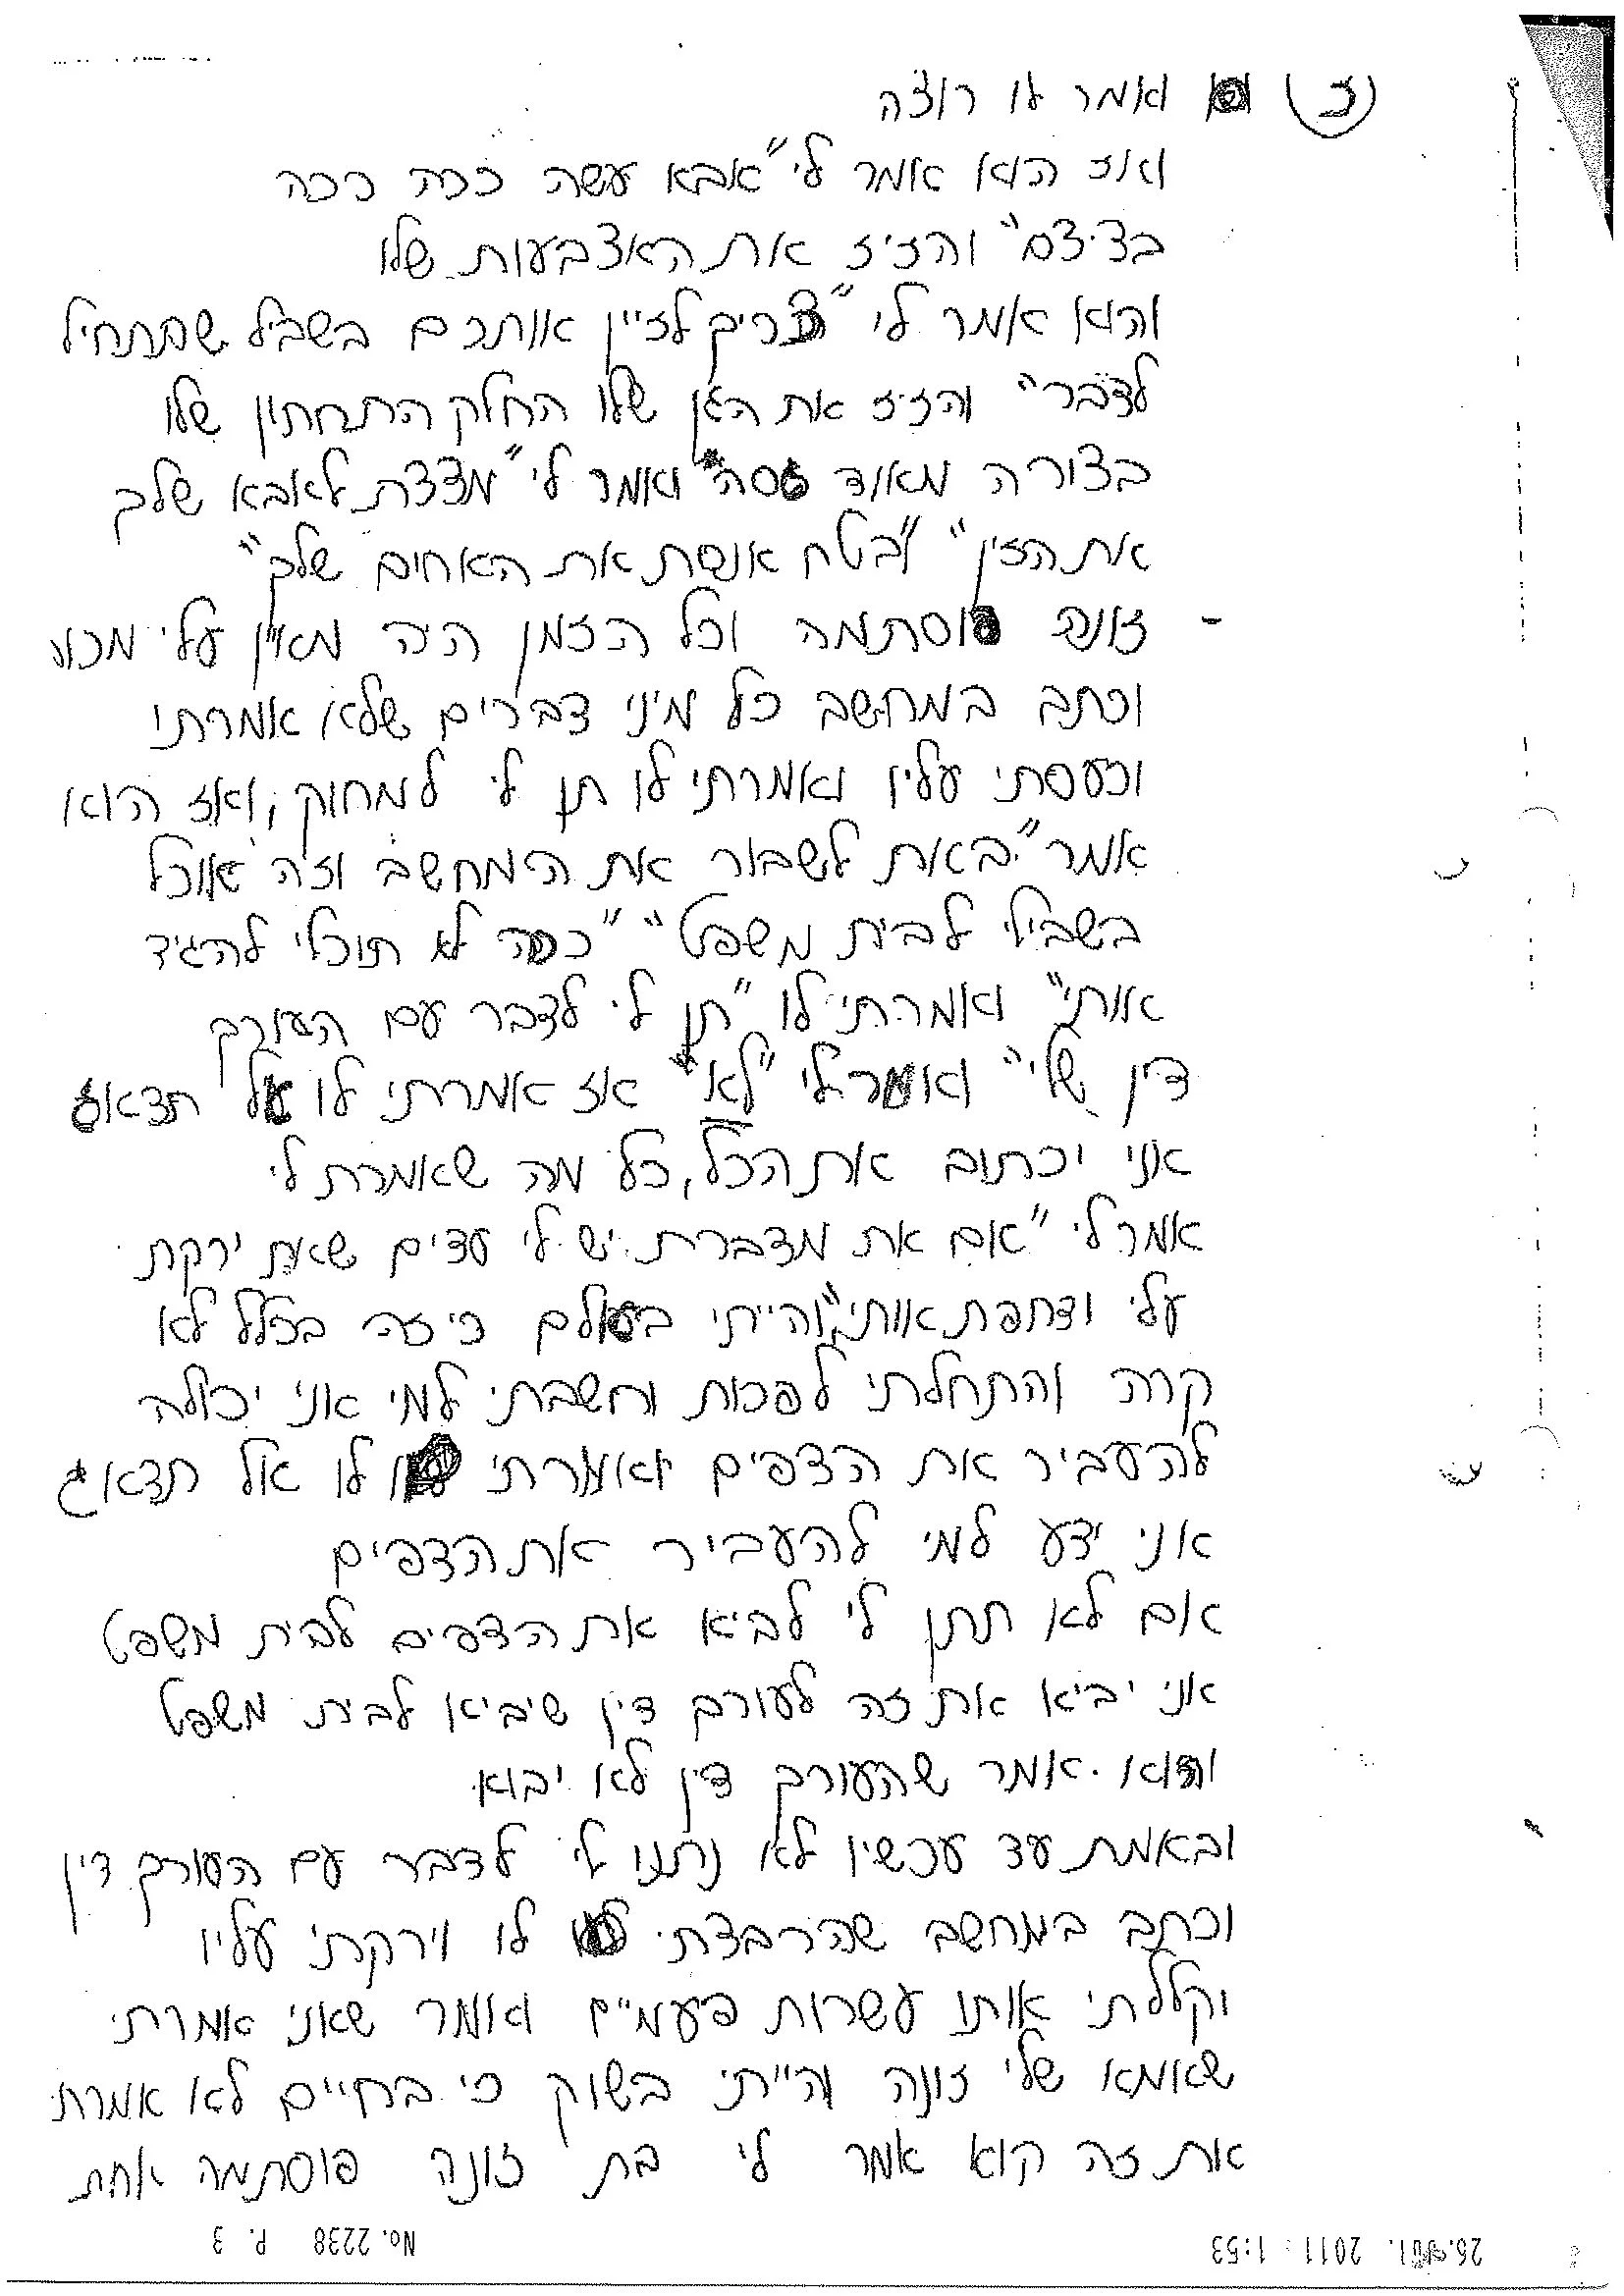 (2) ואמר לו רוצה
ואז הוא אמר לי "אבא עשה ככה ככה
בציצים" והזיז את האצבעות שלו
והוא אמר לי "צריך לזיין אותכם בשביל שתתחיל
לדבר" והזיז את הגוף שלו החלק התחתון שלו
בצורה מאוד גסה ואמר לי "מצצת לאבא שלך
את הזין" "בטח אנסת את האחים שלך"
- זונה פוסתמה וכל הזמן היה מאיין עלי מכות
וכתב במחשב כל מיני דברים שלא אמרתי
וכעסתי עליו ואמרתי לו תן לי למחוק, ואז הוא
אמר "באת לשבור את המחשב וזה אוכל
בשבילי לבית משפט" "ככה לא תוכלי להגיד
אותי" ואמרתי לו "תן לי לדבר עם העורך
דין שלי" ואמר לי "לא" אז אמרתי לו אל תדאג
אני יכתוב את הכל, כל מה שאמרת לי
אמר לי "אם את מדברת יש לי עדים שאת ירקת
עלי ודחפת אותי" והייתי בהלם כי זה בכלל לא
קרה והתחלתי לבכות וחשבתי למי אני יכולה
להעביר את הדפים ואמרתי לו אל תדאג
אני ידע למי להעביר את הדפים
אם לא תתן לי להביא את הדפים לבית משפט
אני יביא את זה לעורך דין שיביא לבית משפט
והוא אמר שהעורך דין לא יבוא
ובאמת עד עכשיו לא נתנו לי לדבר עם העורך דין
וכתב במחשב שהרבצתי לו וירקתי עליו
וקללתי אותו עשרות פעמים ואמר שאני אמרתי
שאמא שלי זונה והייתי בשוק כי בחיים לא אמרתי
את זה הוא אמר לי בת זונה פוסתמה אחת
No. 2238 P. 3
2011 1:53